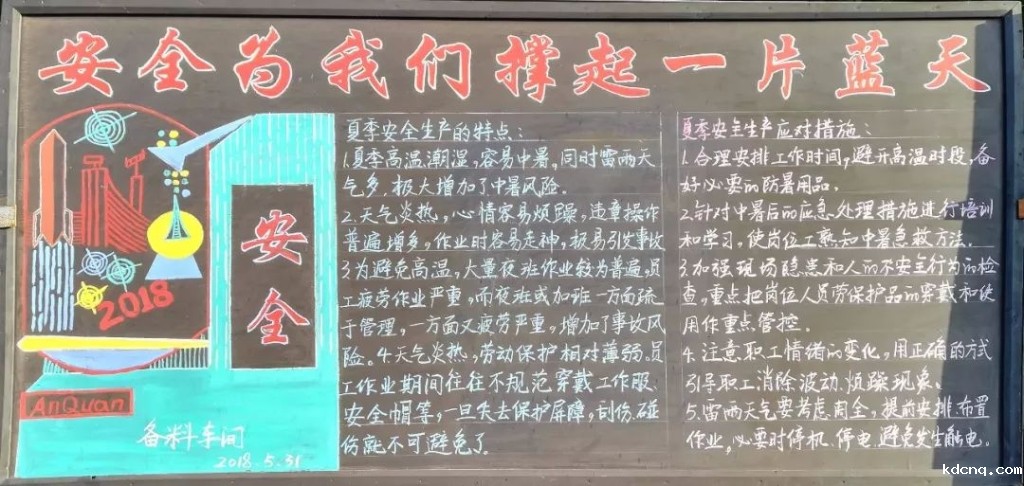 安全为我们撑起一片蓝天
2018
安
全
AnQuan
备料车间
2018.5.31
夏季安全生产的特点:
1.夏季高温潮湿,容易中暑,同时雷雨天
气多.极大增加了中暑风险.
2.天气炎热,心情容易烦躁,违章操作
普遍增多,作业时容易走神,极易引发事故
3.为避免高温,大量夜班作业较为普遍,员
工疲劳作业严重,而夜班或加班一方面疏
于管理,一方面又疲劳严重,增加了事故风
险.4.天气炎热,劳动保护相对薄弱.员
工作业期间往往不规范穿戴工作服.
安全帽等,一旦失去保护屏障,刮伤.碰
伤就不可避免了.
夏季安全生产应对措施:
1.合理安排工作时间,避开高温时段.备
好必要的防暑用品.
2.针对中暑后的应急处理措施进行培训
和学习,使岗位工熟知中暑急救方法.
3.加强现场隐患和人的不安全行为的检
查,重点把岗位人员劳保护品的穿戴和使
用作重点管控.
4.注意职工情绪的变化,用正确的方式
引导职工消除波动.烦躁现象.
5.雷雨天气要考虑周全,提前安排.布置
作业,必要时停机.停电.避免发生触电.
kdcnq.com